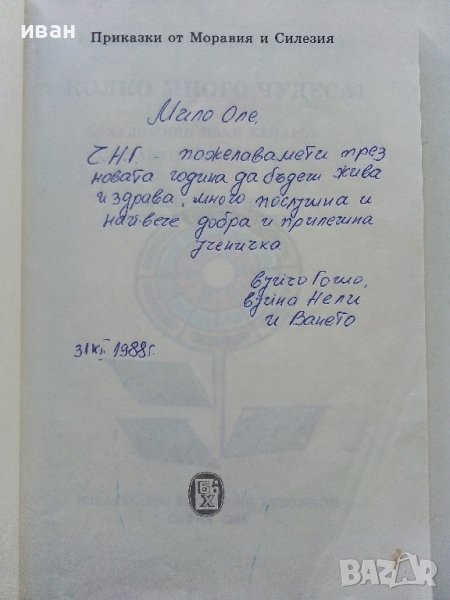 иван
Приказки от Моравия и Силезия
КОЛКО МНОГО ЧУДЕСА!
Мило Оле,
Ч.Н.Г. пожелавамети през
новата година да бъдеш жива
и здрава, много послушна и
най-вече добра и прилежна
ученичка
вуйчо Гошо,
вуйна Нели
и Ването
31 XII 1988г.
Б
Х
BAZAR.BG